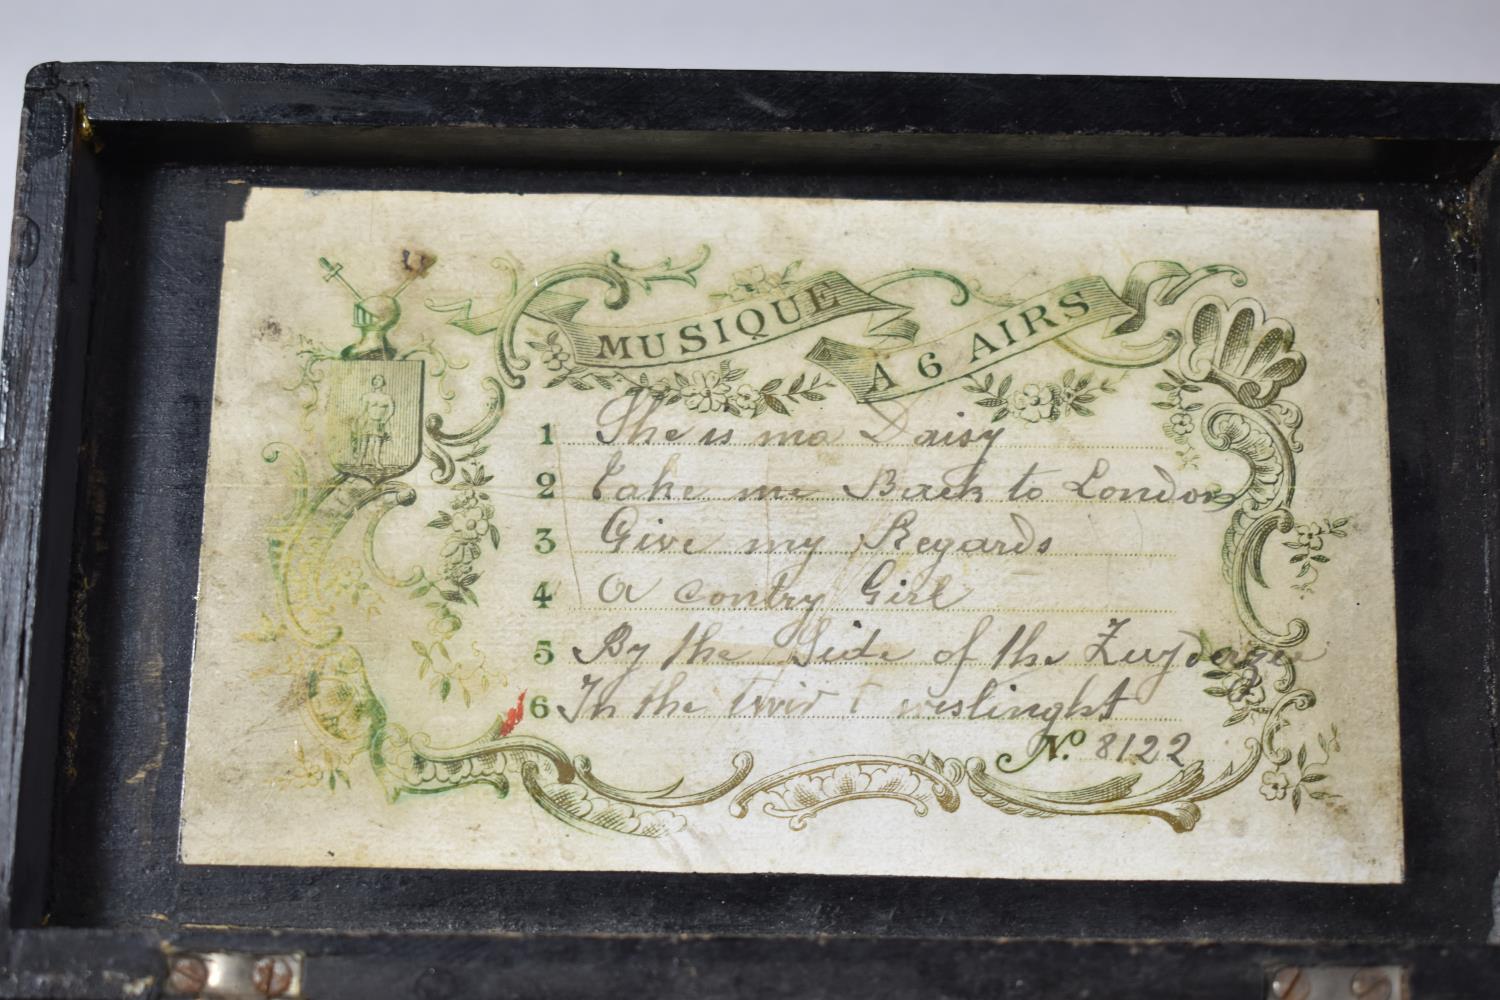 MUSIQUE
A 6 AIRS
1 She is ma Daisy
2 Take me Back to London
3 Give my Regards
4 A contry Girl
5 By the Side of the
6 In the t
No. 8122